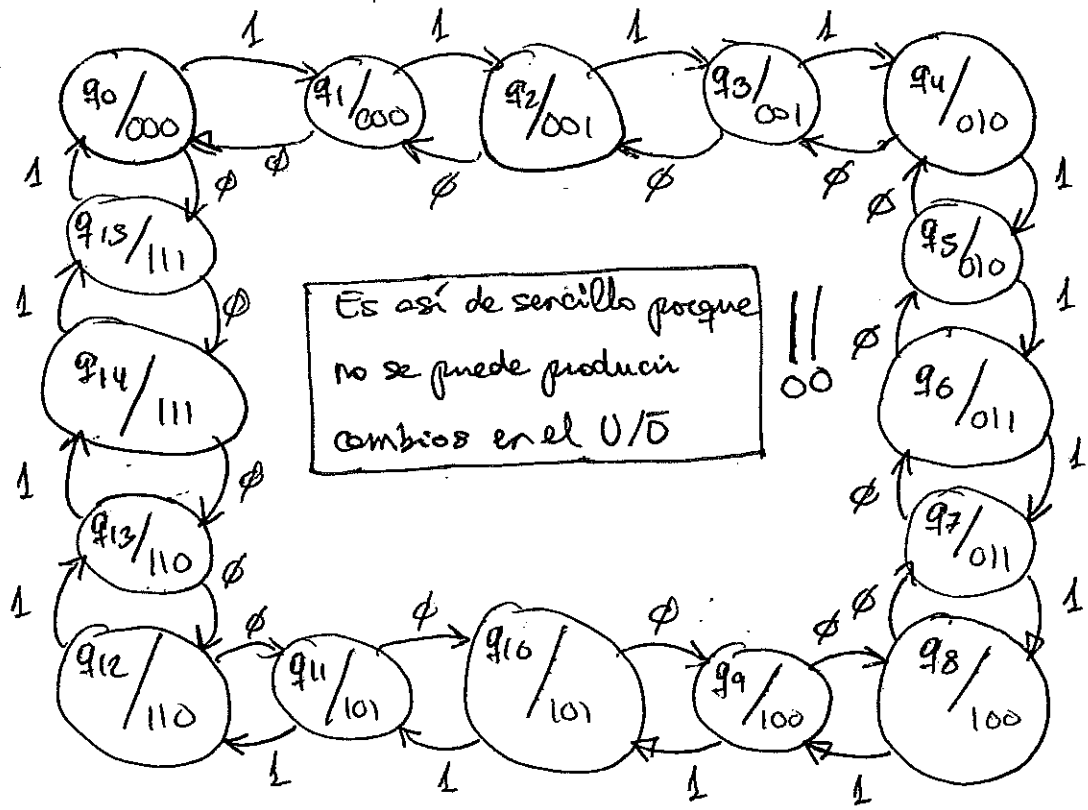 1 1 1 1
q0/000 q1/000 q2/001 q3/001 q4/010
1 ∅ ∅ ∅ ∅ ∅ ∅ 1
q15/111 q5/010
1 ∅ ∅ 1
Es así de sencillo porque
no se puede producir
cambios en el U/D̅
!!
q14/111 q6/011
1 ∅ ∅ 1
q13/110 q7/011
1 ∅ ∅ ∅ ∅ ∅ ∅ 1
q12/110 q11/101 q10/101 q9/100 q8/100
1 1 1 1